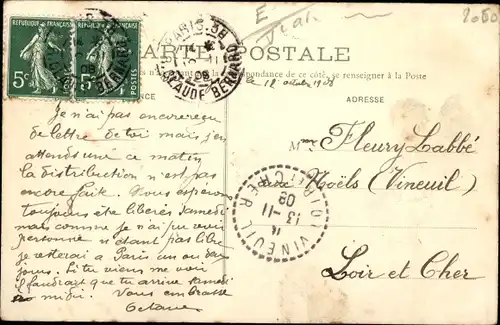 RÉPUBLIQUE FRANÇAISE RÉPUBLIQUE FRANÇAISE
5c POSTES 5c POSTES
PARIS
08
CLAUDE BERNARD
CARTE POSTALE
respondance de ce côté, se renseigner à la Poste
le 12 octobre 1908
ADRESSE
Je n'ai pas encore reçu
de lettre de toi mais j'en
attends une ce matin
la distribution n'est pas
encore faite. Nous espérons
toujours être libérés Samedi
mais comme je n'ai pu voir
personne n'étant pas libre
je resterai à Paris un ou deux
jours. Si tu viens me voir
il faudrait que tu arrive Samedi
à midi. Vous embrasse
Octave
M Fleury Labbé
aux Noëls (Vineuil)
Loir et Cher
13-11
08
VINEUIL
CHER